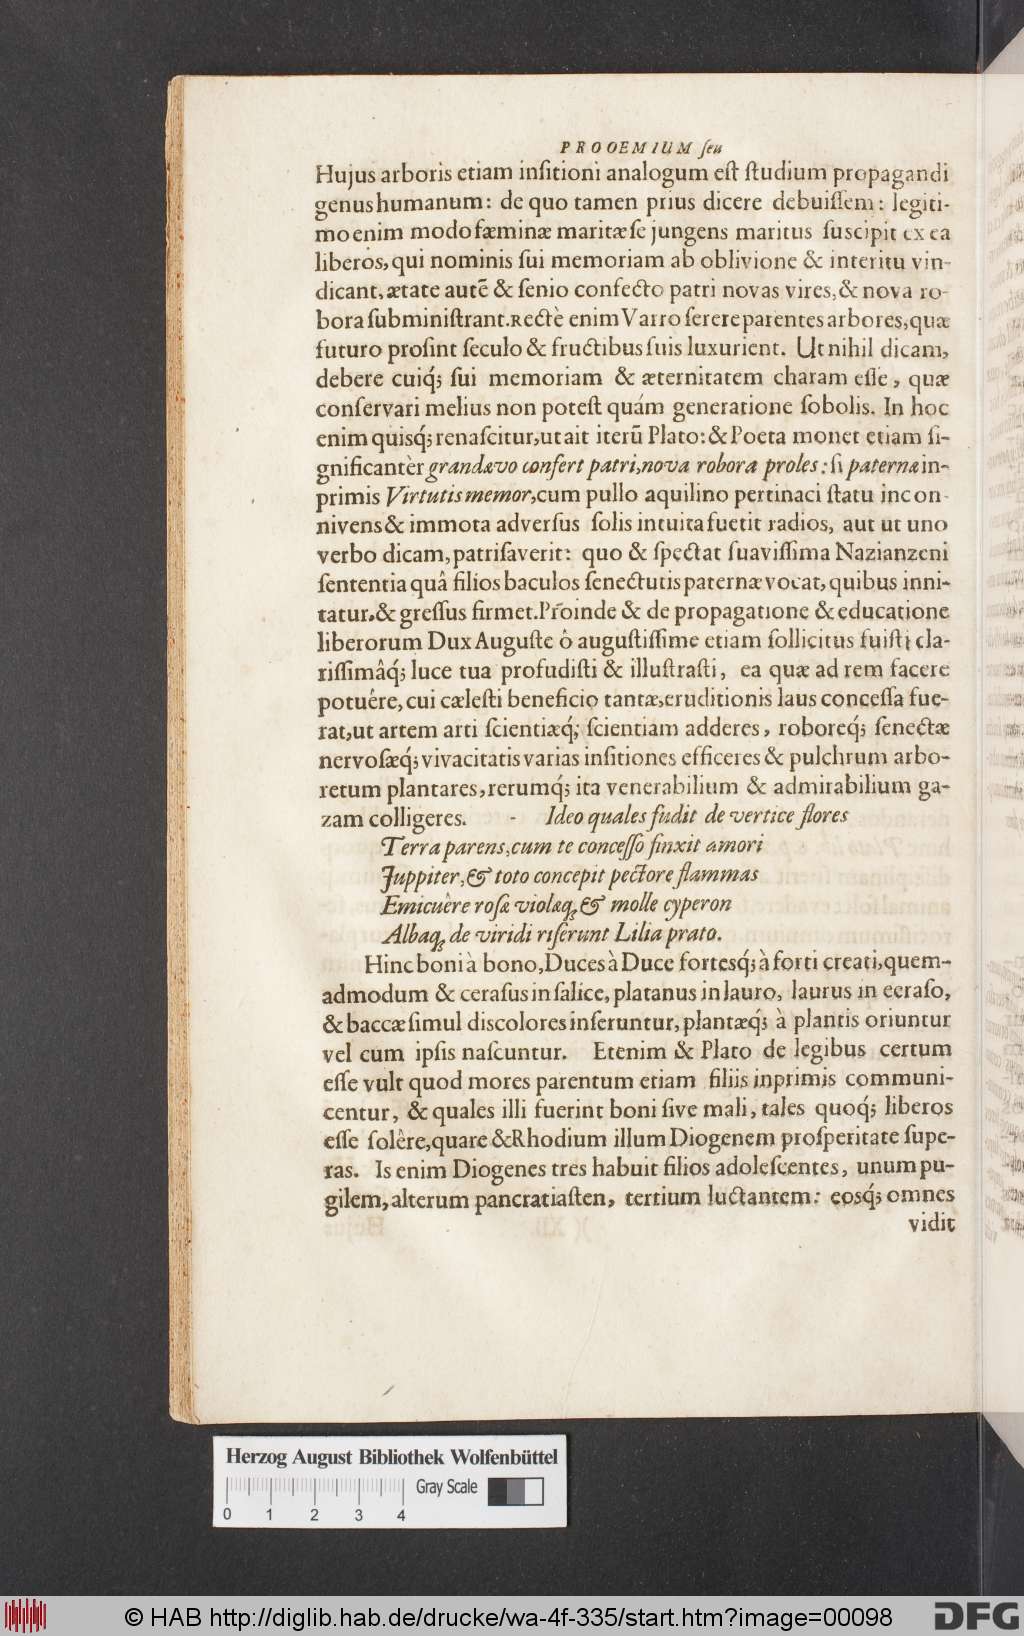 PROOEMIUM ſeu
Hujus arboris etiam inſitioni analogum eſt ſtudium propagandi
genus humanum: de quo tamen prius dicere debuiſſem: legiti-
mo enim modo fæminæ maritæ ſe jungens maritus ſuscipit ex ea
liberos, qui nominis ſui memoriam ab oblivione & interitu vin-
dicant, ætate autē & ſenio confecto patri novas vires, & nova ro-
bora ſubminiſtrant. Rectè enim Varro ſerere parentes arbores, quæ
futuro proſint ſeculo & fructibus ſuis luxurient. Ut nihil dicam,
debere cuiq́; ſui memoriam & æternitatem charam eſſe, quæ
conſervari melius non poteſt quám generatione ſobolis. In hoc
enim quisq́; renaſcitur, ut ait iterū Plato: & Poeta monet etiam ſi-
gnificantèr grandævo confert patri, nova robora proles: ſi paternæ in-
primis Virtutis memor, cum pullo aquilino pertinaci ſtatu incon-
nivens & immota adverſus ſolis intuita fuetit radios, aut ut uno
verbo dicam, patriſaverit: quo & ſpectat ſuaviſſima Nazianzeni
ſententia quâ filios baculos ſenectutis paternæ vocat, quibus inni-
tatur, & greſſus firmet. Proinde & de propagatione & educatione
liberorum Dux Auguſte ô auguſtiſſime etiam ſollicitus fuiſti cla-
riſſimâq́; luce tua profudiſti & illuſtraſti, ea quæ ad rem facere
potuêre, cui cæleſti beneficio tantæ, eruditionis laus conceſſa fue-
rat, ut artem arti ſcientiæq́; ſcientiam adderes, roboreq́; ſenectæ
nervoſæq́; vivacitatis varias inſitiones efficeres & pulchrum arbo-
retum plantares, rerumq́; ita venerabilium & admirabilium ga-
zam colligeres. - Ideo quales fudit de vertice flores
Terra parens, cum te conceſſo finxit amori
Juppiter, & toto concepit pectore flammas
Emicuêre roſæ violæq; & molle cyperon
Albaq; de viridi riſerunt Lilia prato.
Hinc boni à bono, Duces à Duce fortesq́; à forti creati, quem-
admodum & ceraſus in ſalice, platanus in lauro, laurus in eeraſo,
& baccæ ſimul discolores inſeruntur, plantæq́; à plantis oriuntur
vel cum ipſis naſcuntur. Etenim & Plato de legibus certum
eſſe vult quod mores parentum etiam filiis inprimis communi-
centur, & quales illi fuerint boni ſive mali, tales quoq́; liberos
eſſe ſolêre, quare & Rhodium illum Diogenem proſperitate ſupe-
ras. Is enim Diogenes tres habuit filios adoleſcentes, unum pu-
gilem, alterum pancratiaſten, tertium luctantem: eosq́; omnes
vidit
Herzog August Bibliothek Wolfenbüttel
Gray Scale
0 1 2 3 4
© HAB http://diglib.hab.de/drucke/wa-4f-335/start.htm?image=00098
DFG